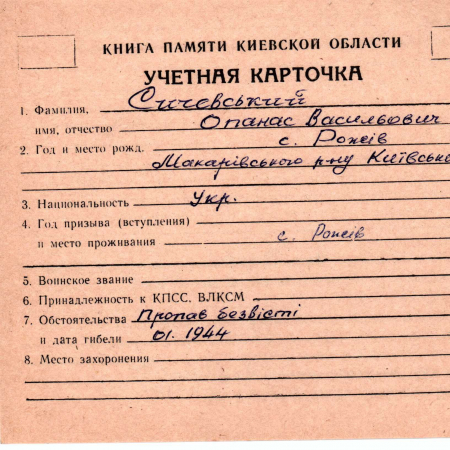 КНИГА ПАМЯТИ КИЕВСКОЙ ОБЛАСТИ
УЧЕТНАЯ КАРТОЧКА
1. Фамилия, Сичевський
имя, отчество Опанас Васильович
2. Год и место рожд. с. Рожів
Макарівського р-ну Київсько
3. Национальность Укр.
4. Год призыва (вступления)
и место проживания с. Рожів
5. Воинское звание
6. Принадлежность к КПСС, ВЛКСМ
7. Обстоятельства Пропав безвісті
и дата гибели 01. 1944
8. Место захоронения